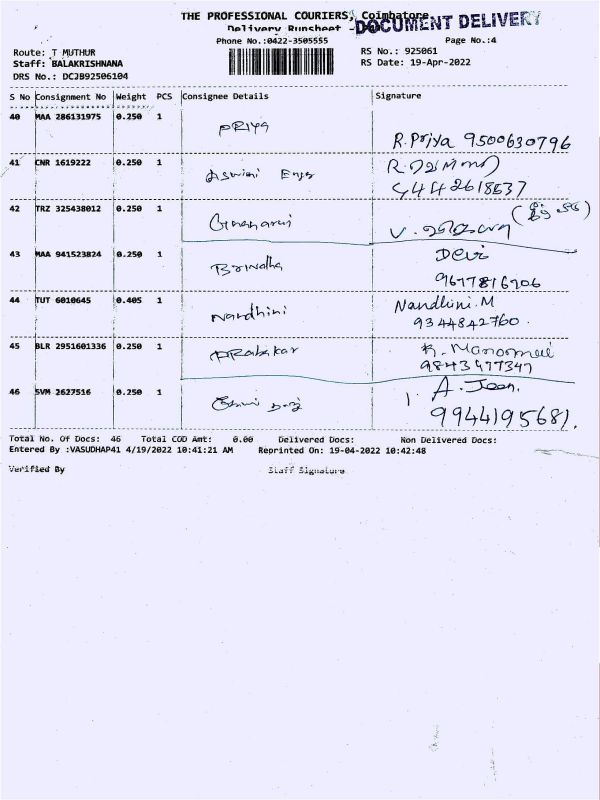 THE PROFESSIONAL COURIERS, Coimbatore
Delivery Runsheet -
DOCUMENT DELIVERY
Phone No.:0422-3505555 Page No.:4
Route: T MUTHUR RS No.: 925061
Staff: BALAKRISHNANA RS Date: 19-Apr-2022
DRS No.: DCJB92506104
S No Consignment No Weight PCS Consignee Details Signature
40 MAA 286131975 0.250 1 PRIYA R.Priya 9500630796
41 CNR 1619222 0.250 1 Aswini 9442618537
42 TRZ 325438012 0.250 1
43 MAA 941523824 0.250 1 Brindha Devi
9677816906
44 TUT 6010645 0.405 1 Nandhini Nandhini.M
9344842760.
45 BLR 2951601336 0.250 1 PRabakar
9843477347
46 SVM 2627516 0.250 1 A. Jean.
9944195681.
Total No. Of Docs: 46 Total COD Amt: 0.00 Delivered Docs: Non Delivered Docs:
Entered By :VASUDHAP41 4/19/2022 10:41:21 AM Reprinted On: 19-04-2022 10:42:48
Verified By Staff Signature